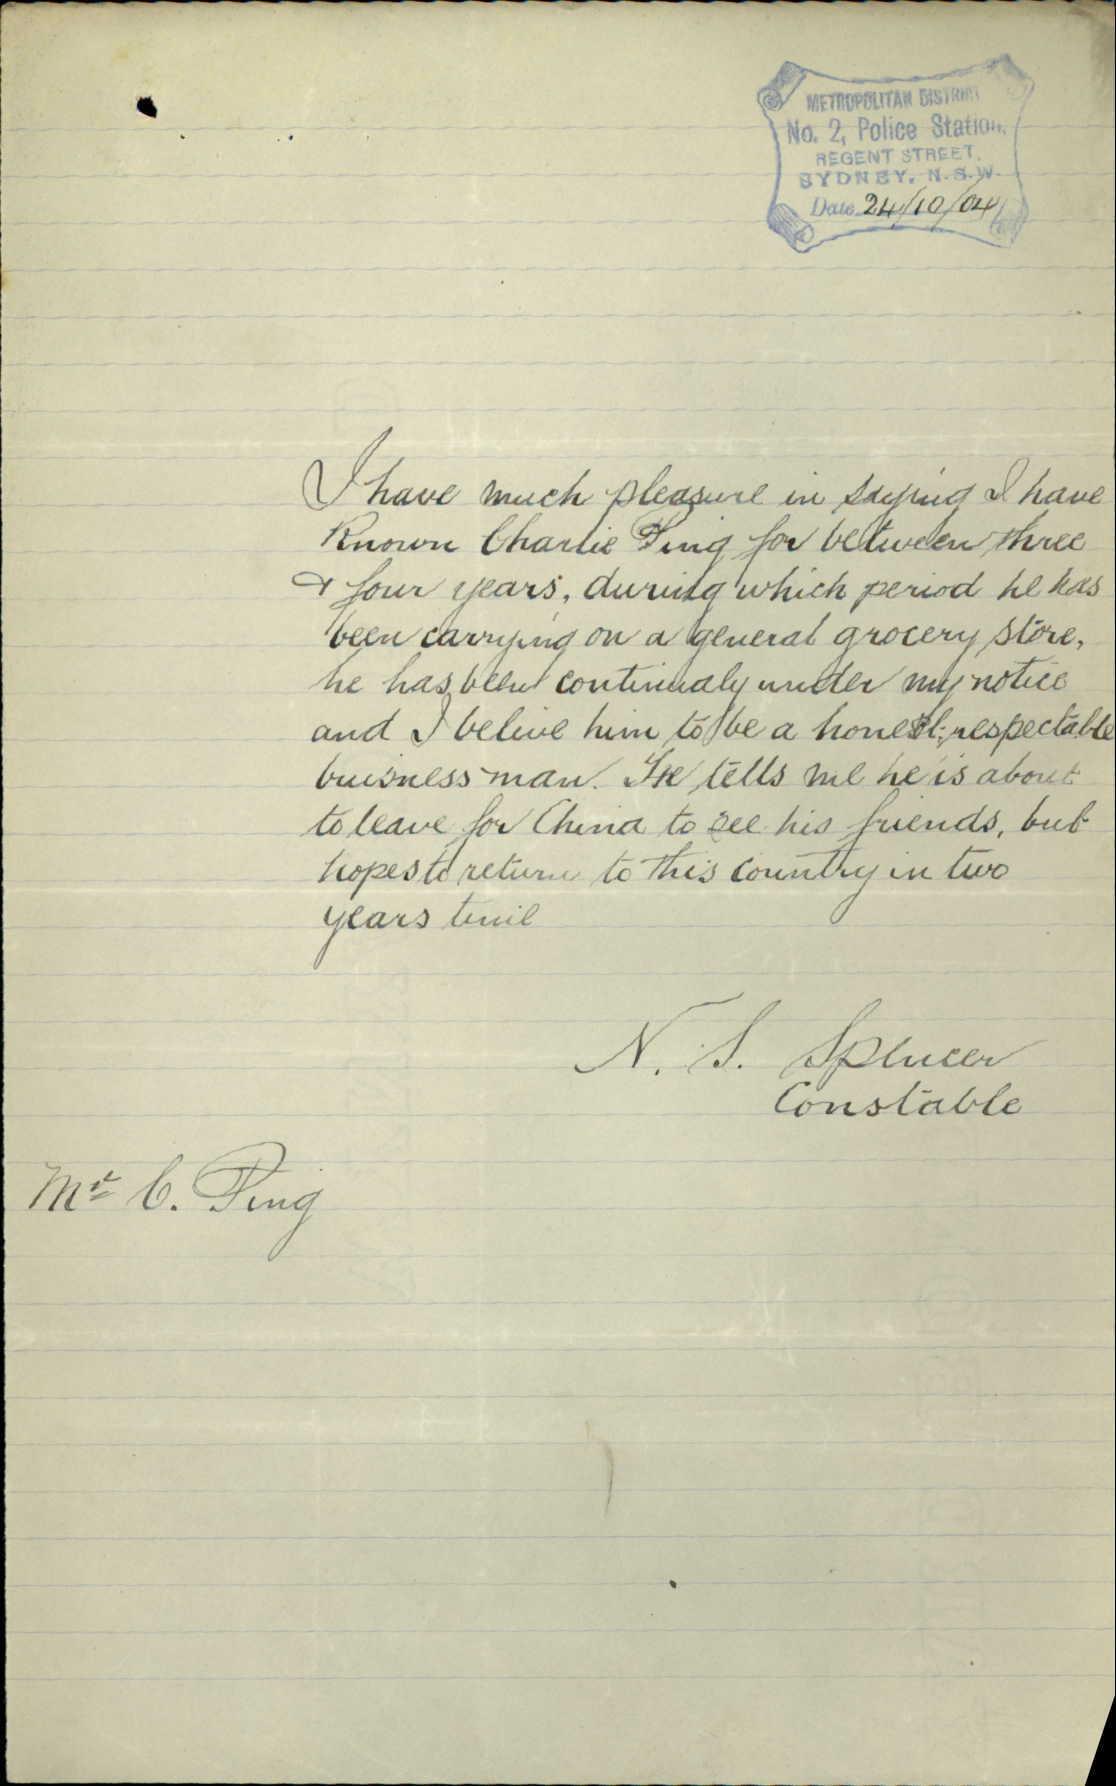 METROPOLITAN DISTRICT
No. 2, Police Station,
REGENT STREET,
SYDNEY, N.S.W.
Date 24/10/04
I have much pleasure in saying I have
Known Charlie Ping for between three
& four years, during which period he has
been carrying on a general grocery store,
he has been continualy under my notice
and I belive him to be a honest, respectable
buisness man. He tells me he is about
to leave for China to see his friends, but
hopes to return to this country in two
years time
N. S. Spencer
Constable
Mr C. Ping